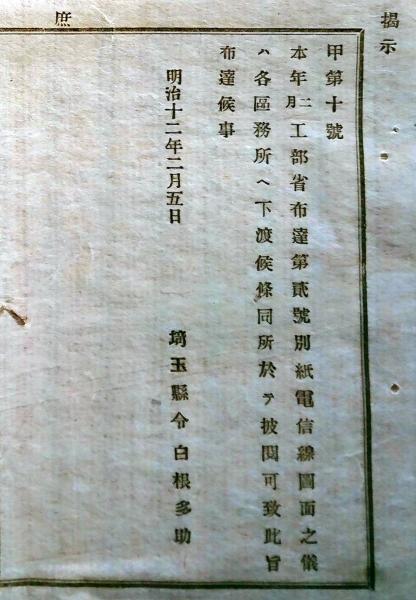 揭示
甲第十號
本年二月工部省布達第貳號別紙電信線圖面之儀
ハ各區務所ヘ下渡候條同所於テ披閱可致此旨
布達候事
明治十二年二月五日
埼玉縣令白根多助
庶